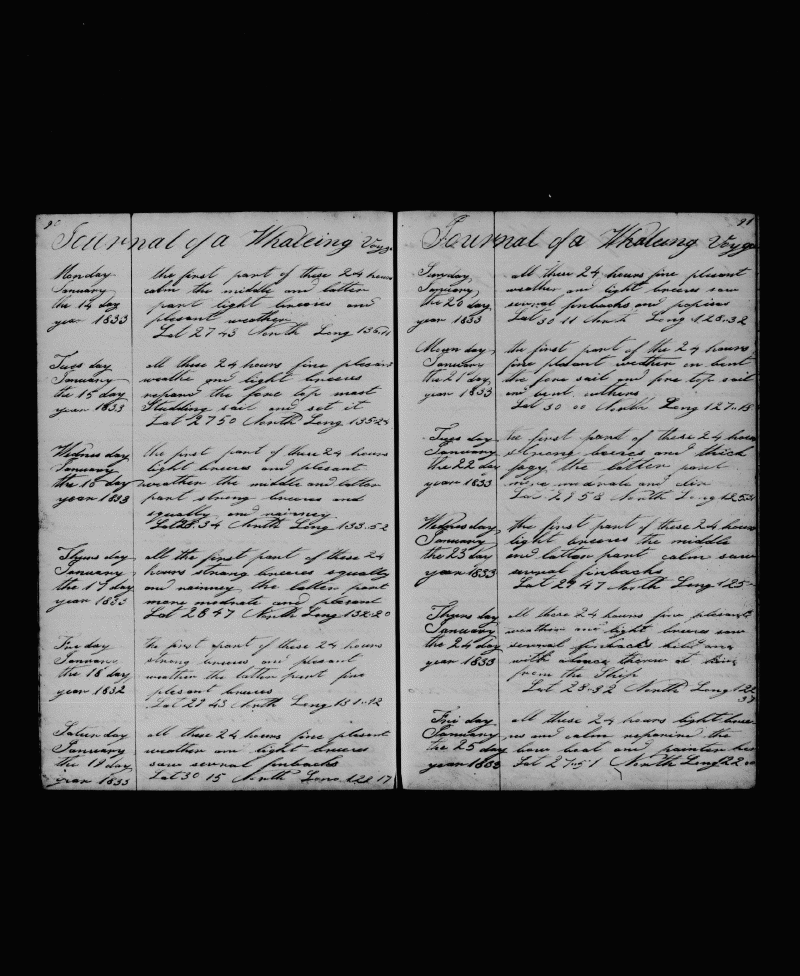 90
Journal of a Whaleing Voyge
Monday the first part of these 24 hours
January calm the middle and latter
the 14 day part light breeies and
year 1833 plesant weather
Lat 27 43 North Long 135
Tues day all these 24 hours fine plesant
January weathe and light breeies
the 15 day repard the fore top mast
year 1833 Studding sail and set it
Lat 27 50 North Long 135-24
Wednes day the first part of these 24 hours
January light breeies and plesant
the 16 day weather the middle and latter
year 1833 part strong breeies and
squally and rainney
Lat 28.34 North Long 133.52
Thurs day all the first part of these 24
January hours strang breeies squally
the 17 day and rainney the latter part
year 1833 more modrate and plesant
Lat 28 47 North Long 132-20
Fri day the first part of these 24 hours
January strong breeies and plesant
the 18 day weather the latter part fine
year 1832 plesent breeies
Lat 29 43 North Long 131-12
Satur day all these 24 hours fine plesent
January weather and light breeies
the 19 day saw sevral finbacks
year 1833 Lat 30 15 North Long 17
91
Journal of a Whaleing Voyge
Sunday all these 24 hours fine plesant
January weather and light breeies saw
the 20 day sevral finbacks and
year 1833 Lat 30 11 North Long 128-32
Moun day the first part of the 24 hours
January fine plesant wether on bent
the 21 day the fore sail and fore top sail
year 1833 and bent
Lat 30 00 North Long 127-15
Tues day the first part of these 24 hours
January strong breies and thick
the 22 day fogy the latter part
year 1833 more modrate and
Lat 29 58 North Long 125
Wednes day the first part of these 24 hours
January light breeies the middle
the 23 day and latter part calm saw
year 1833 sevral finbacks
Lat 29 47 North Long 125
Thurs day all these 24 hours fine plesant
January weather and light breeies saw
the 24 day sevral finbacks
year 1833 with
from the Ship
Lat 28-32 North Long 122
37
Fri day all these 24 hours light breei
January es and calm repairing the
the 25 day bow boat and
year 1833 Lat 27-51 North Long 22